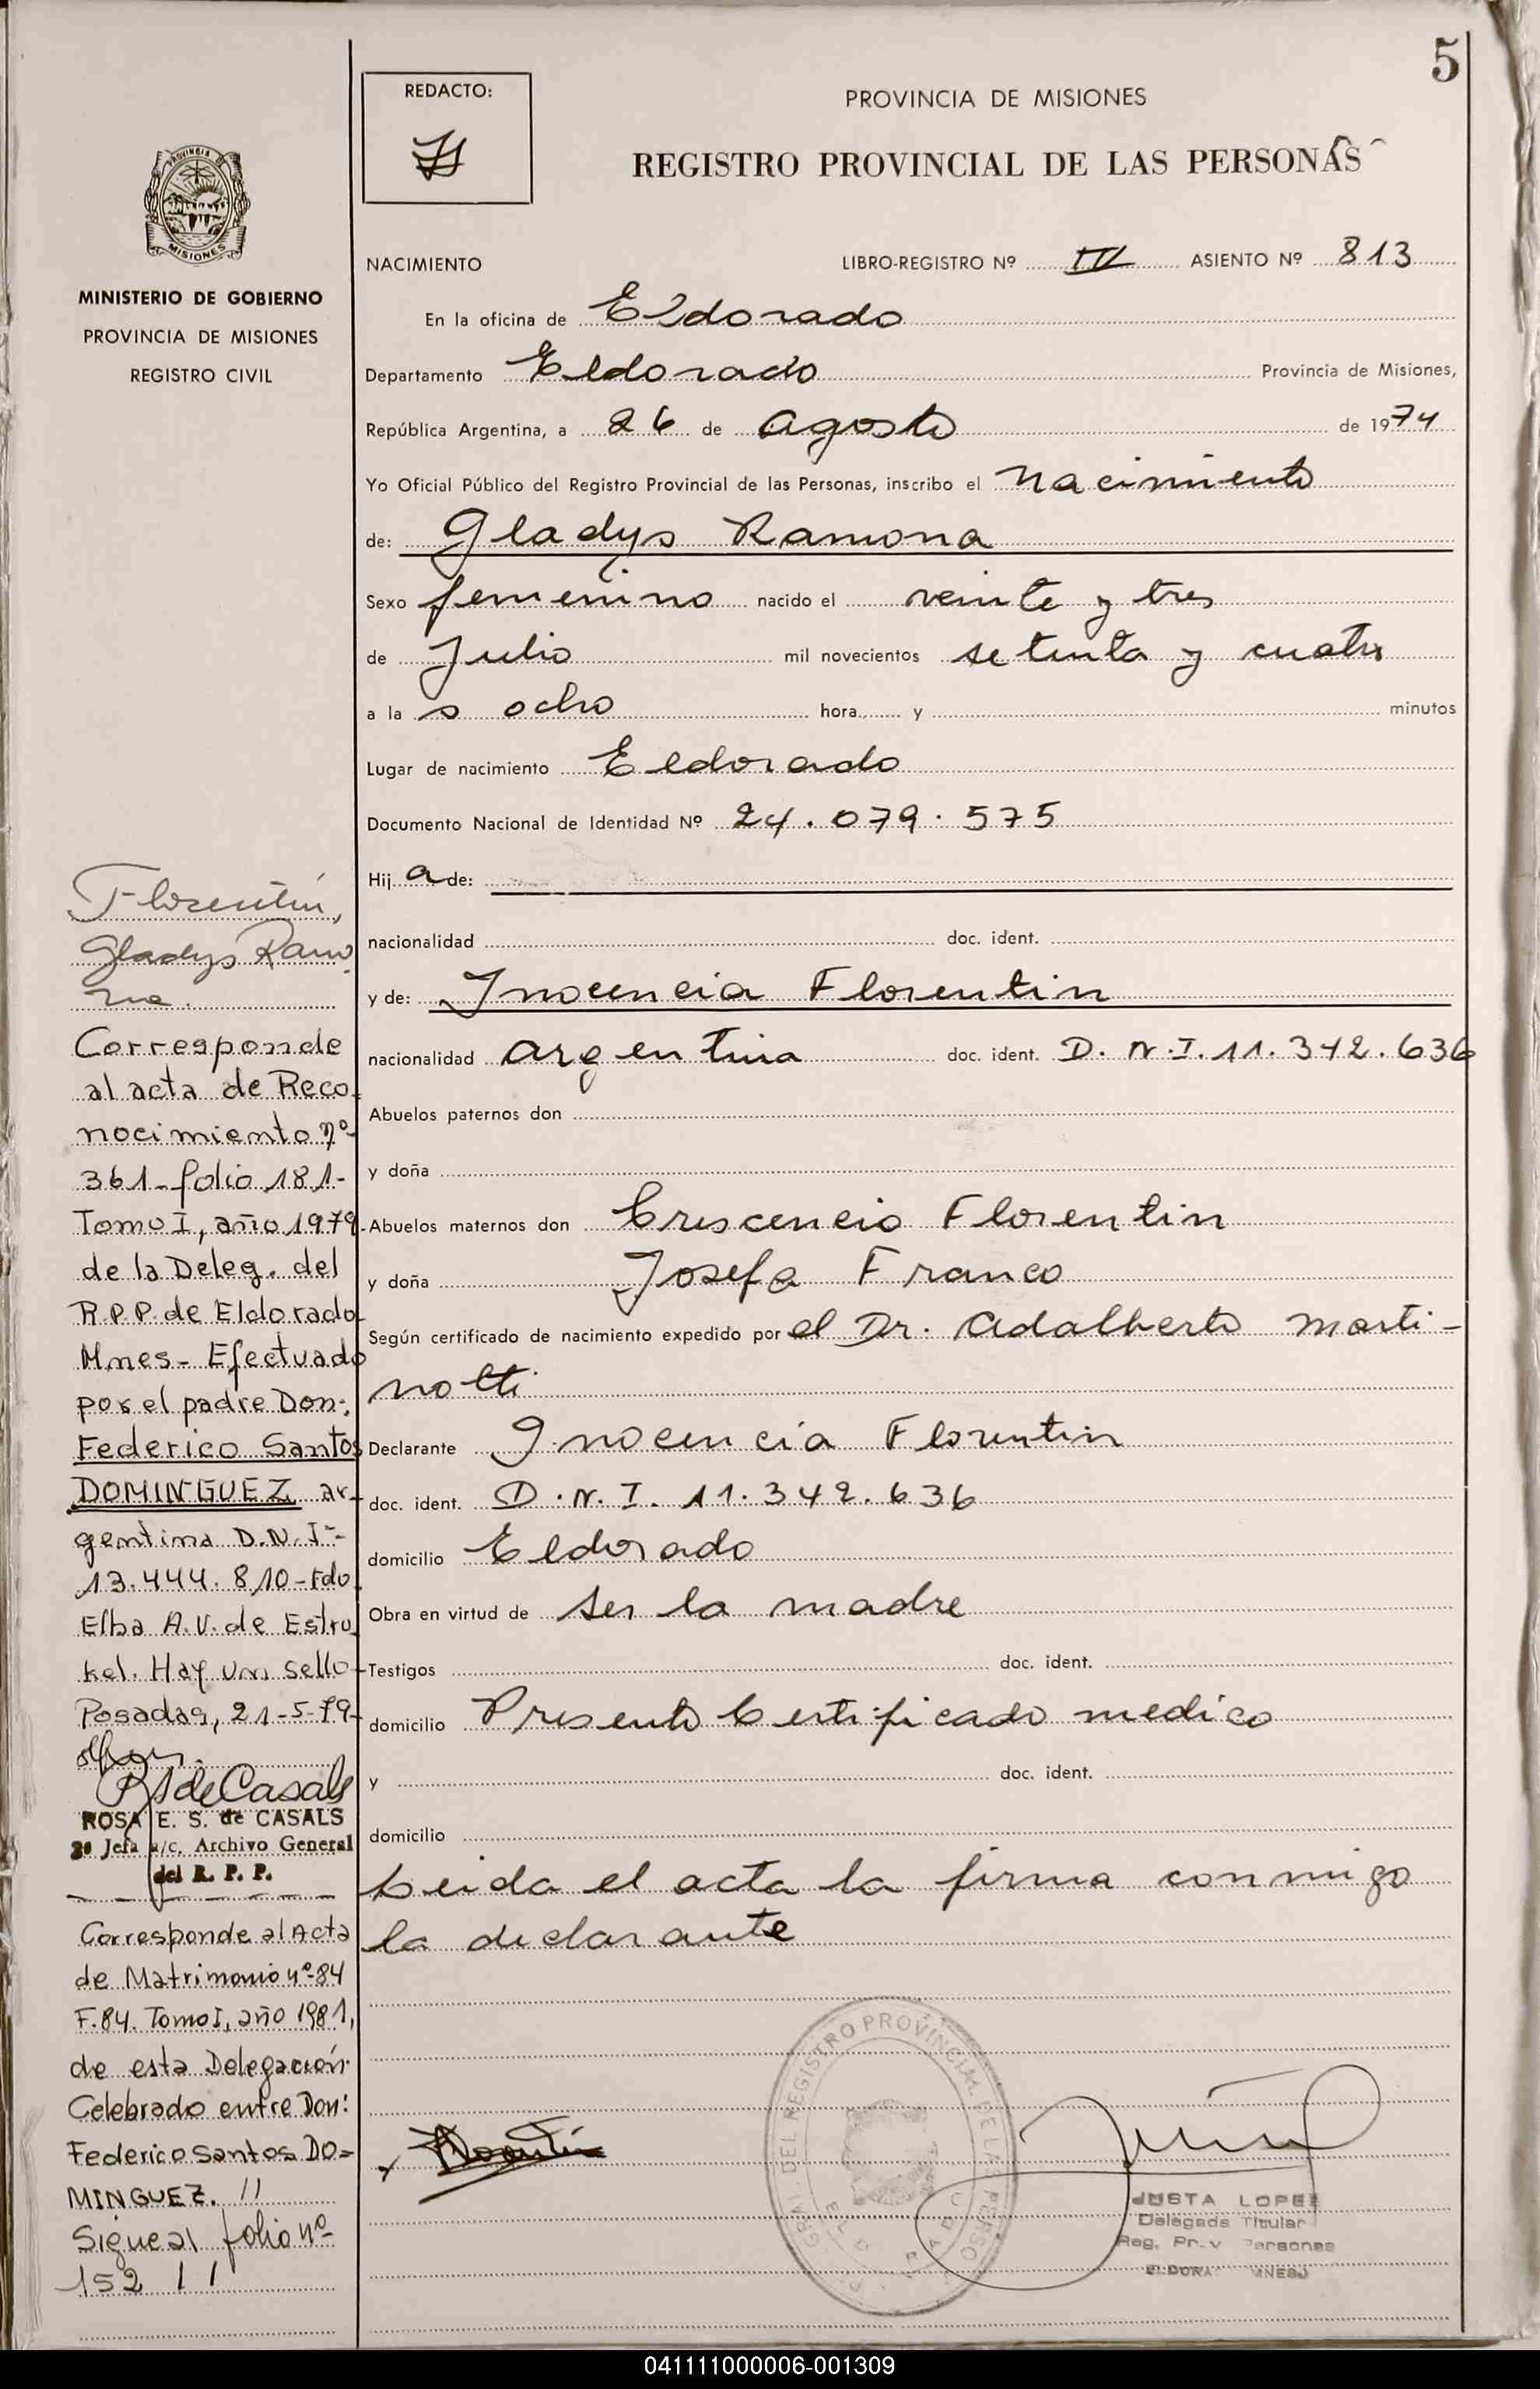 5
REDACTO:
PROVINCIA DE MISIONES
REGISTRO PROVINCIAL DE LAS PERSONAS
PROVINCIA DE
MISIONES
MINISTERIO DE GOBIERNO
PROVINCIA DE MISIONES
REGISTRO CIVIL
NACIMIENTO LIBRO-REGISTRO Nº IV ASIENTO Nº 813
En la oficina de Eldorado
Departamento Eldorado Provincia de Misiones,
República Argentina, a 26 de agosto de 1974
Yo Oficial Público del Registro Provincial de las Personas, inscribo el nacimiento
de: Gladys Ramona
Sexo femenino nacido el veinte y tres
de Julio mil novecientos setenta y cuatro
a la s ocho hora y minutos
Lugar de nacimiento Eldorado
Documento Nacional de Identidad Nº 24.079.575
Hij a de:
nacionalidad doc. ident.
y de: Inocencia Florentin
nacionalidad argentina doc. ident. D.N.I. 11.342.636
Abuelos paternos don
y doña
Abuelos maternos don Crescencio Florentin
y doña Josefa Franco
Según certificado de nacimiento expedido por el Dr. Adalberto Marti-
notti
Declarante Inocencia Florentin
doc. ident. D.N.I. 11.342.636
domicilio Eldorado
Obra en virtud de ser la madre
Testigos doc. ident.
domicilio Presento Certificado medico
y doc. ident.
domicilio
Leida el acta la firma conmigo
la declarante
Florentín,
Gladys Ramo
na.
Corresponde
al acta de Reco-
nocimiento nº
361-folio 181-
Tomo I, año 1979-
de la Deleg. del
R.P.P. de Eldorado
Mnes- Efectuado
por el padre Don:
Federico Santos
DOMINGUEZ ar-
gentino D.N.I-
13.444.810-Fdo
Elba A.V. de Estru
kel. Hay un sello-
Posadas, 21-5-79-
RSdeCasals
ROSA E. S. de CASALS
2º Jefa a/c. Archivo General
del R. P. P.
Corresponde al Acta
de Matrimonio nº 84
F.84. Tomo I, año 1981,
de esta Delegación
Celebrado entre Don:
Federico Santos DO=
MINGUEZ. //
Sigue al folio nº
152 //
x Florentin
GRAL. DEL REGISTRO PROVINCIAL DE LAS PERSO
JUSTA LOPEZ
Delegada Titular
Reg. Prov Personas
041111000006-001309